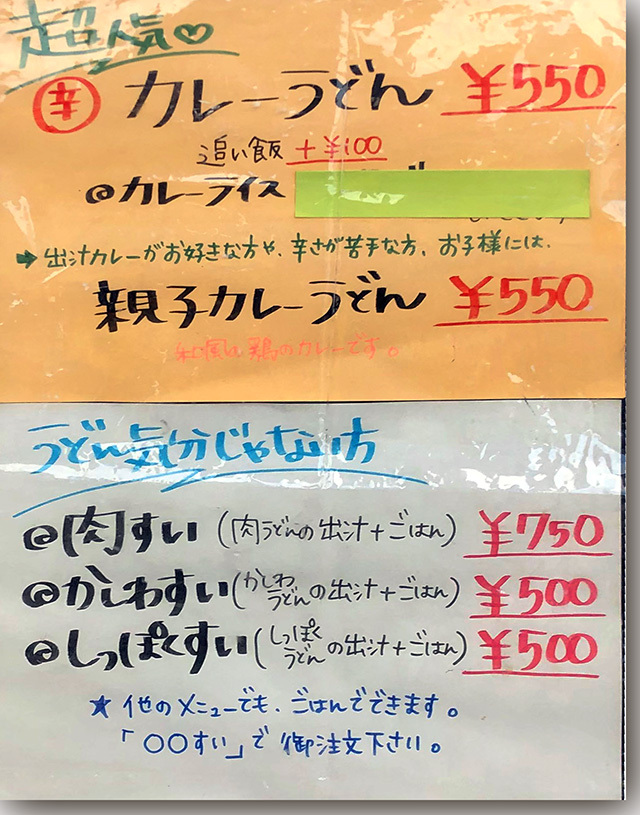 超人気♡
辛 カレーうどん ¥550
追い飯 +¥100
@カレーライス
→ 出汁カレーがお好きな方や、辛さが苦手な方、お子様には、
親子カレーうどん ¥550
和風な鶏のカレーです。
うどん気分じゃない方
@肉すい(肉うどんの出汁+ごはん) ¥750
@かしわすい(かしわうどんの出汁+ごはん) ¥500
@しっぽくすい(しっぽくうどんの出汁+ごはん) ¥500
★ 他のメニューでも、ごはんでできます。
「〇〇すい」で 御注文下さい。